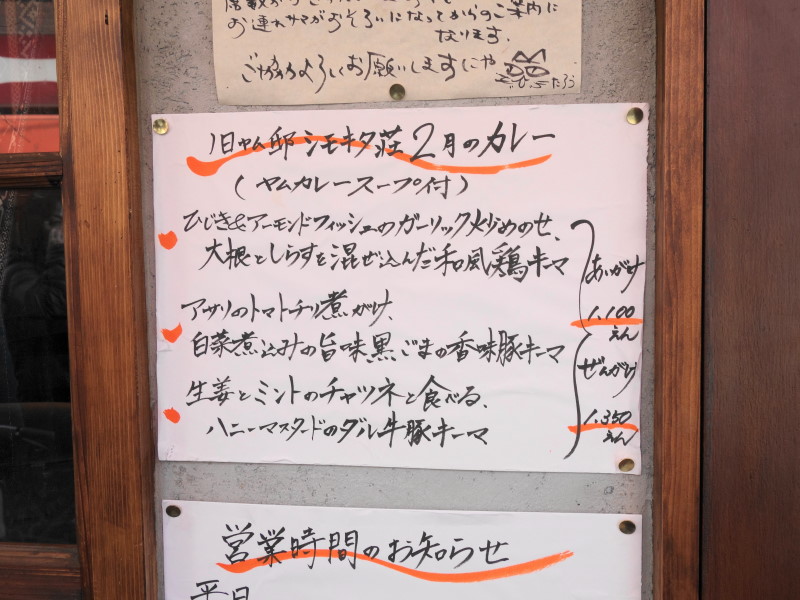 お連れサマがおそろいになってからのご案内に
なります。
ご協力よろしくお願いしますにゃ
旧ヤム邸シモキタ荘 2月のカレー
(ヤムカレースープ付)
ひじき&アーモンドフィッシュのガーリック炒めのせ、
大根としらすを混ぜ込んだ和風鶏キーマ
アサリのトマトチリ煮がけ、
白菜煮込みの旨味黒ごまの香味豚キーマ
生姜とミントのチャツネと食べる、
ハニーマスタードのダル牛豚キーマ
あいがけ
1.100
えん
ぜんがけ
1.350
えん
営業時間のお知らせ
平日